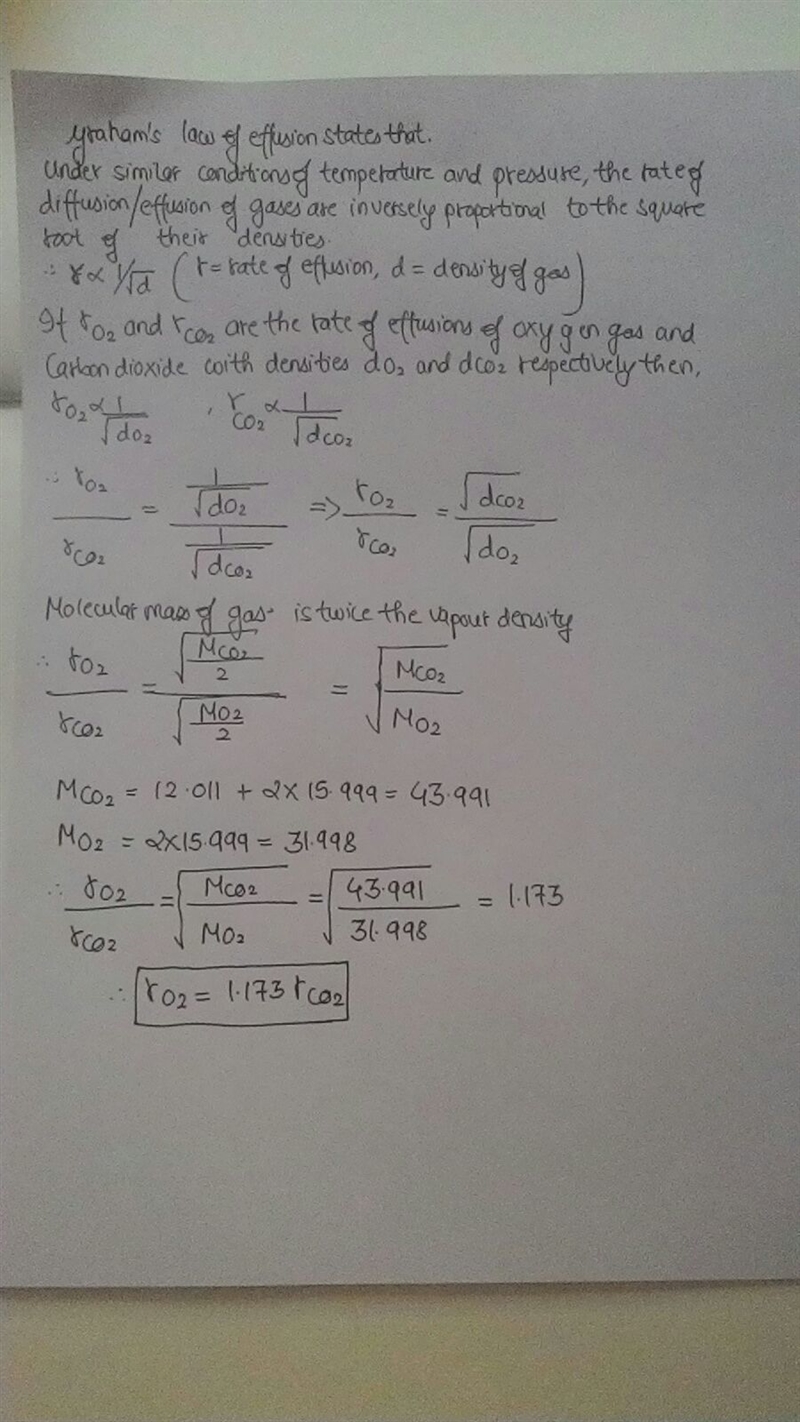 Graham's law of effusion states that.
Under similar conditions of temperature and pressure, the rate of
diffusion/effusion of gases are inversely proportional to the square
root of their densities.
∴ r ∝ 1/√d (r = rate of effusion, d = density of gas)
If rO₂ and rCO₂ are the rate of effusions of oxygen gas and
Carbon dioxide with densities dO₂ and dCO₂ respectively then,
rO₂ ∝ 1/√dO₂ , rCO₂ ∝ 1/√dCO₂
∴ rO₂/rCO₂ = (1/√dO₂)/(1/√dCO₂) => rO₂/rCO₂ = √dCO₂/√dO₂
Molecular mass of gas is twice the vapour density
∴ rO₂/rCO₂ = √(MCO₂/2)/√(MO₂/2) = √(MCO₂/MO₂)
MCO₂ = 12.011 + 2×15.999 = 43.991
MO₂ = 2×15.999 = 31.998
∴ rO₂/rCO₂ = √(MCO₂/MO₂) = √(43.991/31.998) = 1.173
∴ rO₂ = 1.173 rCO₂